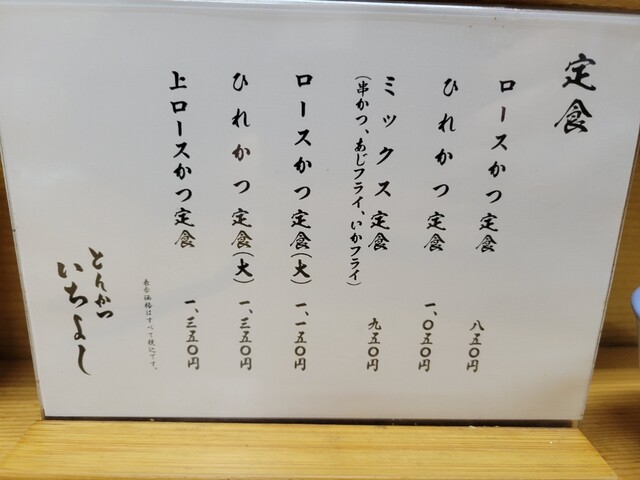 定食
ロースかつ定食 八五〇円
ひれかつ定食 一、〇五〇円
ミックス定食 九五〇円
(串かつ、あじフライ、いかフライ)
ロースかつ定食(大) 一、一五〇円
ひれかつ定食(大) 一、三五〇円
上ロースかつ定食 一、三五〇円
表示価格はすべて税込です。
とんかつ
いちよし